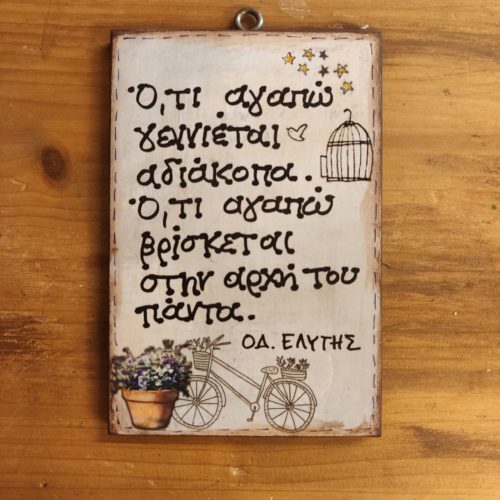 Ό,τι αγαπώ
γεννιέται
αδιάκοπα.
Ό,τι αγαπώ
βρίσκεται
στην αρχή του
πάντα.
ΟΔ. ΕΛΥΤΗΣ